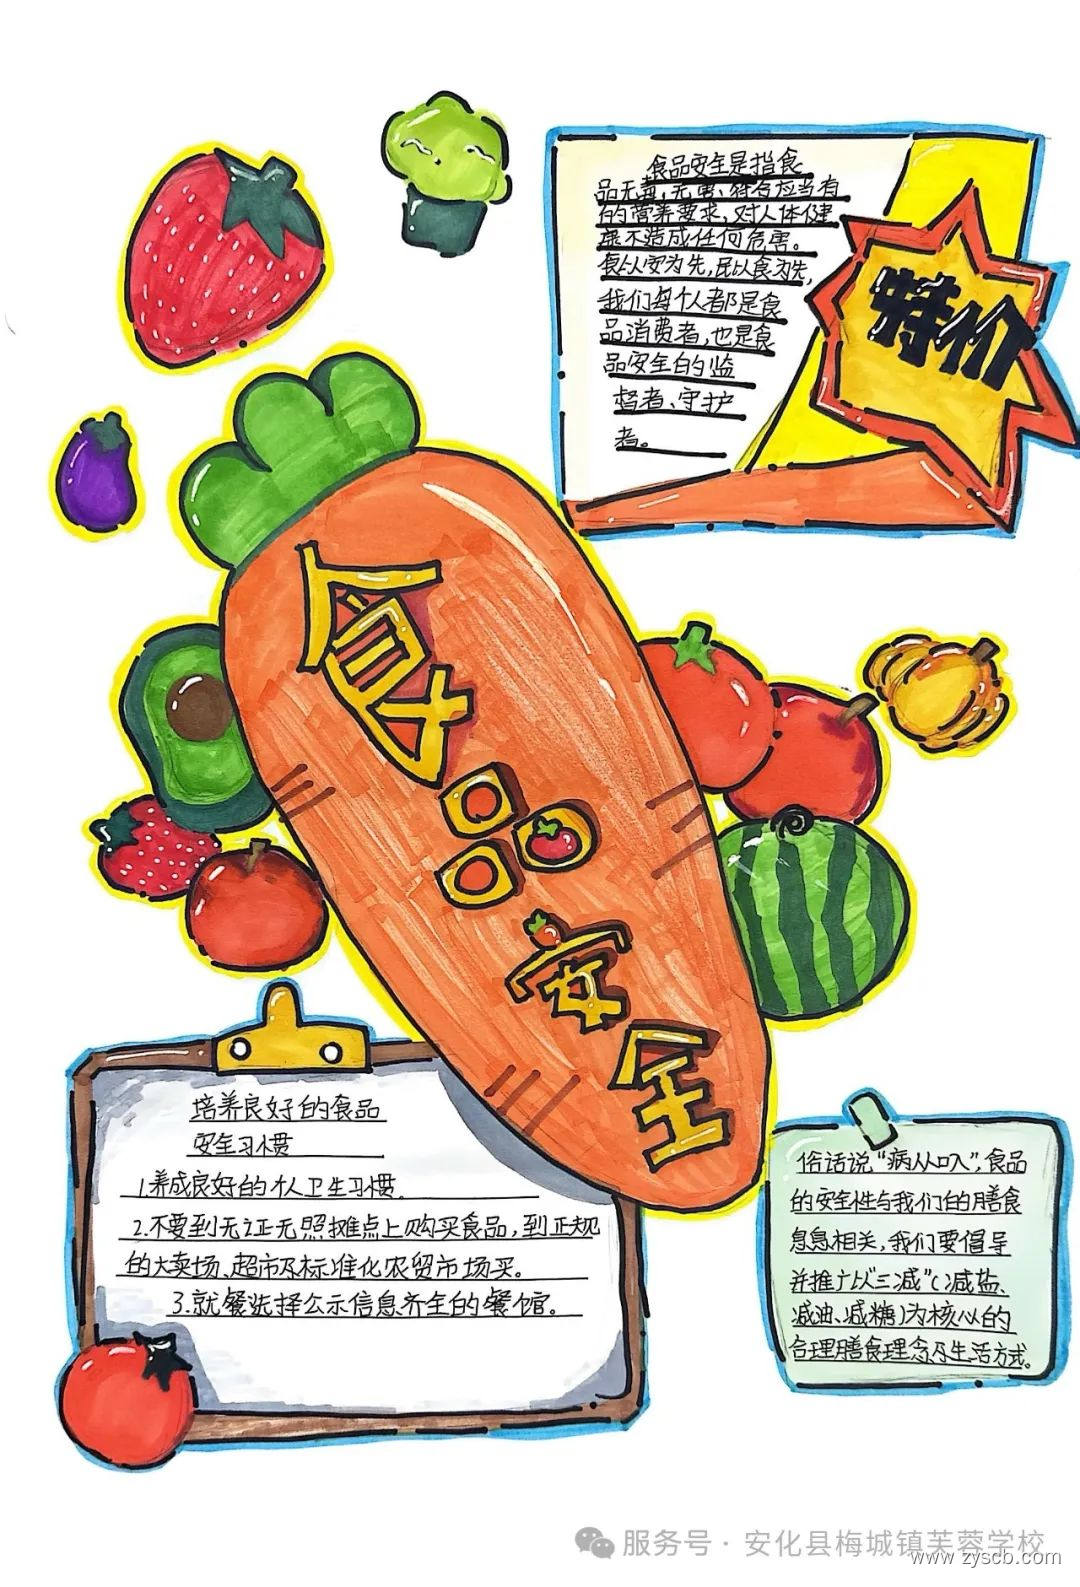 食品安全是指食
品无毒,无害、符合应当有
的营养要求,对人体健
康不造成任何危害。
食以安为先,民以食为先,
我们每个人都是食
品消费者,也是食
品安全的监
督者、守护
者。
特价
食品安全
培养良好的食品
安全习惯
1.养成良好的个人卫生习惯.
2.不要到无证无照摊点上购买食品,到正规
的大卖场、超市及标准化农贸市场买。
3.就餐选择公示信息齐全的餐馆。
俗话说“病从口入”,食品
的安全性与我们的膳食
息息相关,我们要倡导
并推广以“三减”(减盐、
减油、减糖)为核心的
合理膳食理念及生活方式。
服务号·安化县梅城镇芙蓉学校
www.zyscb.com